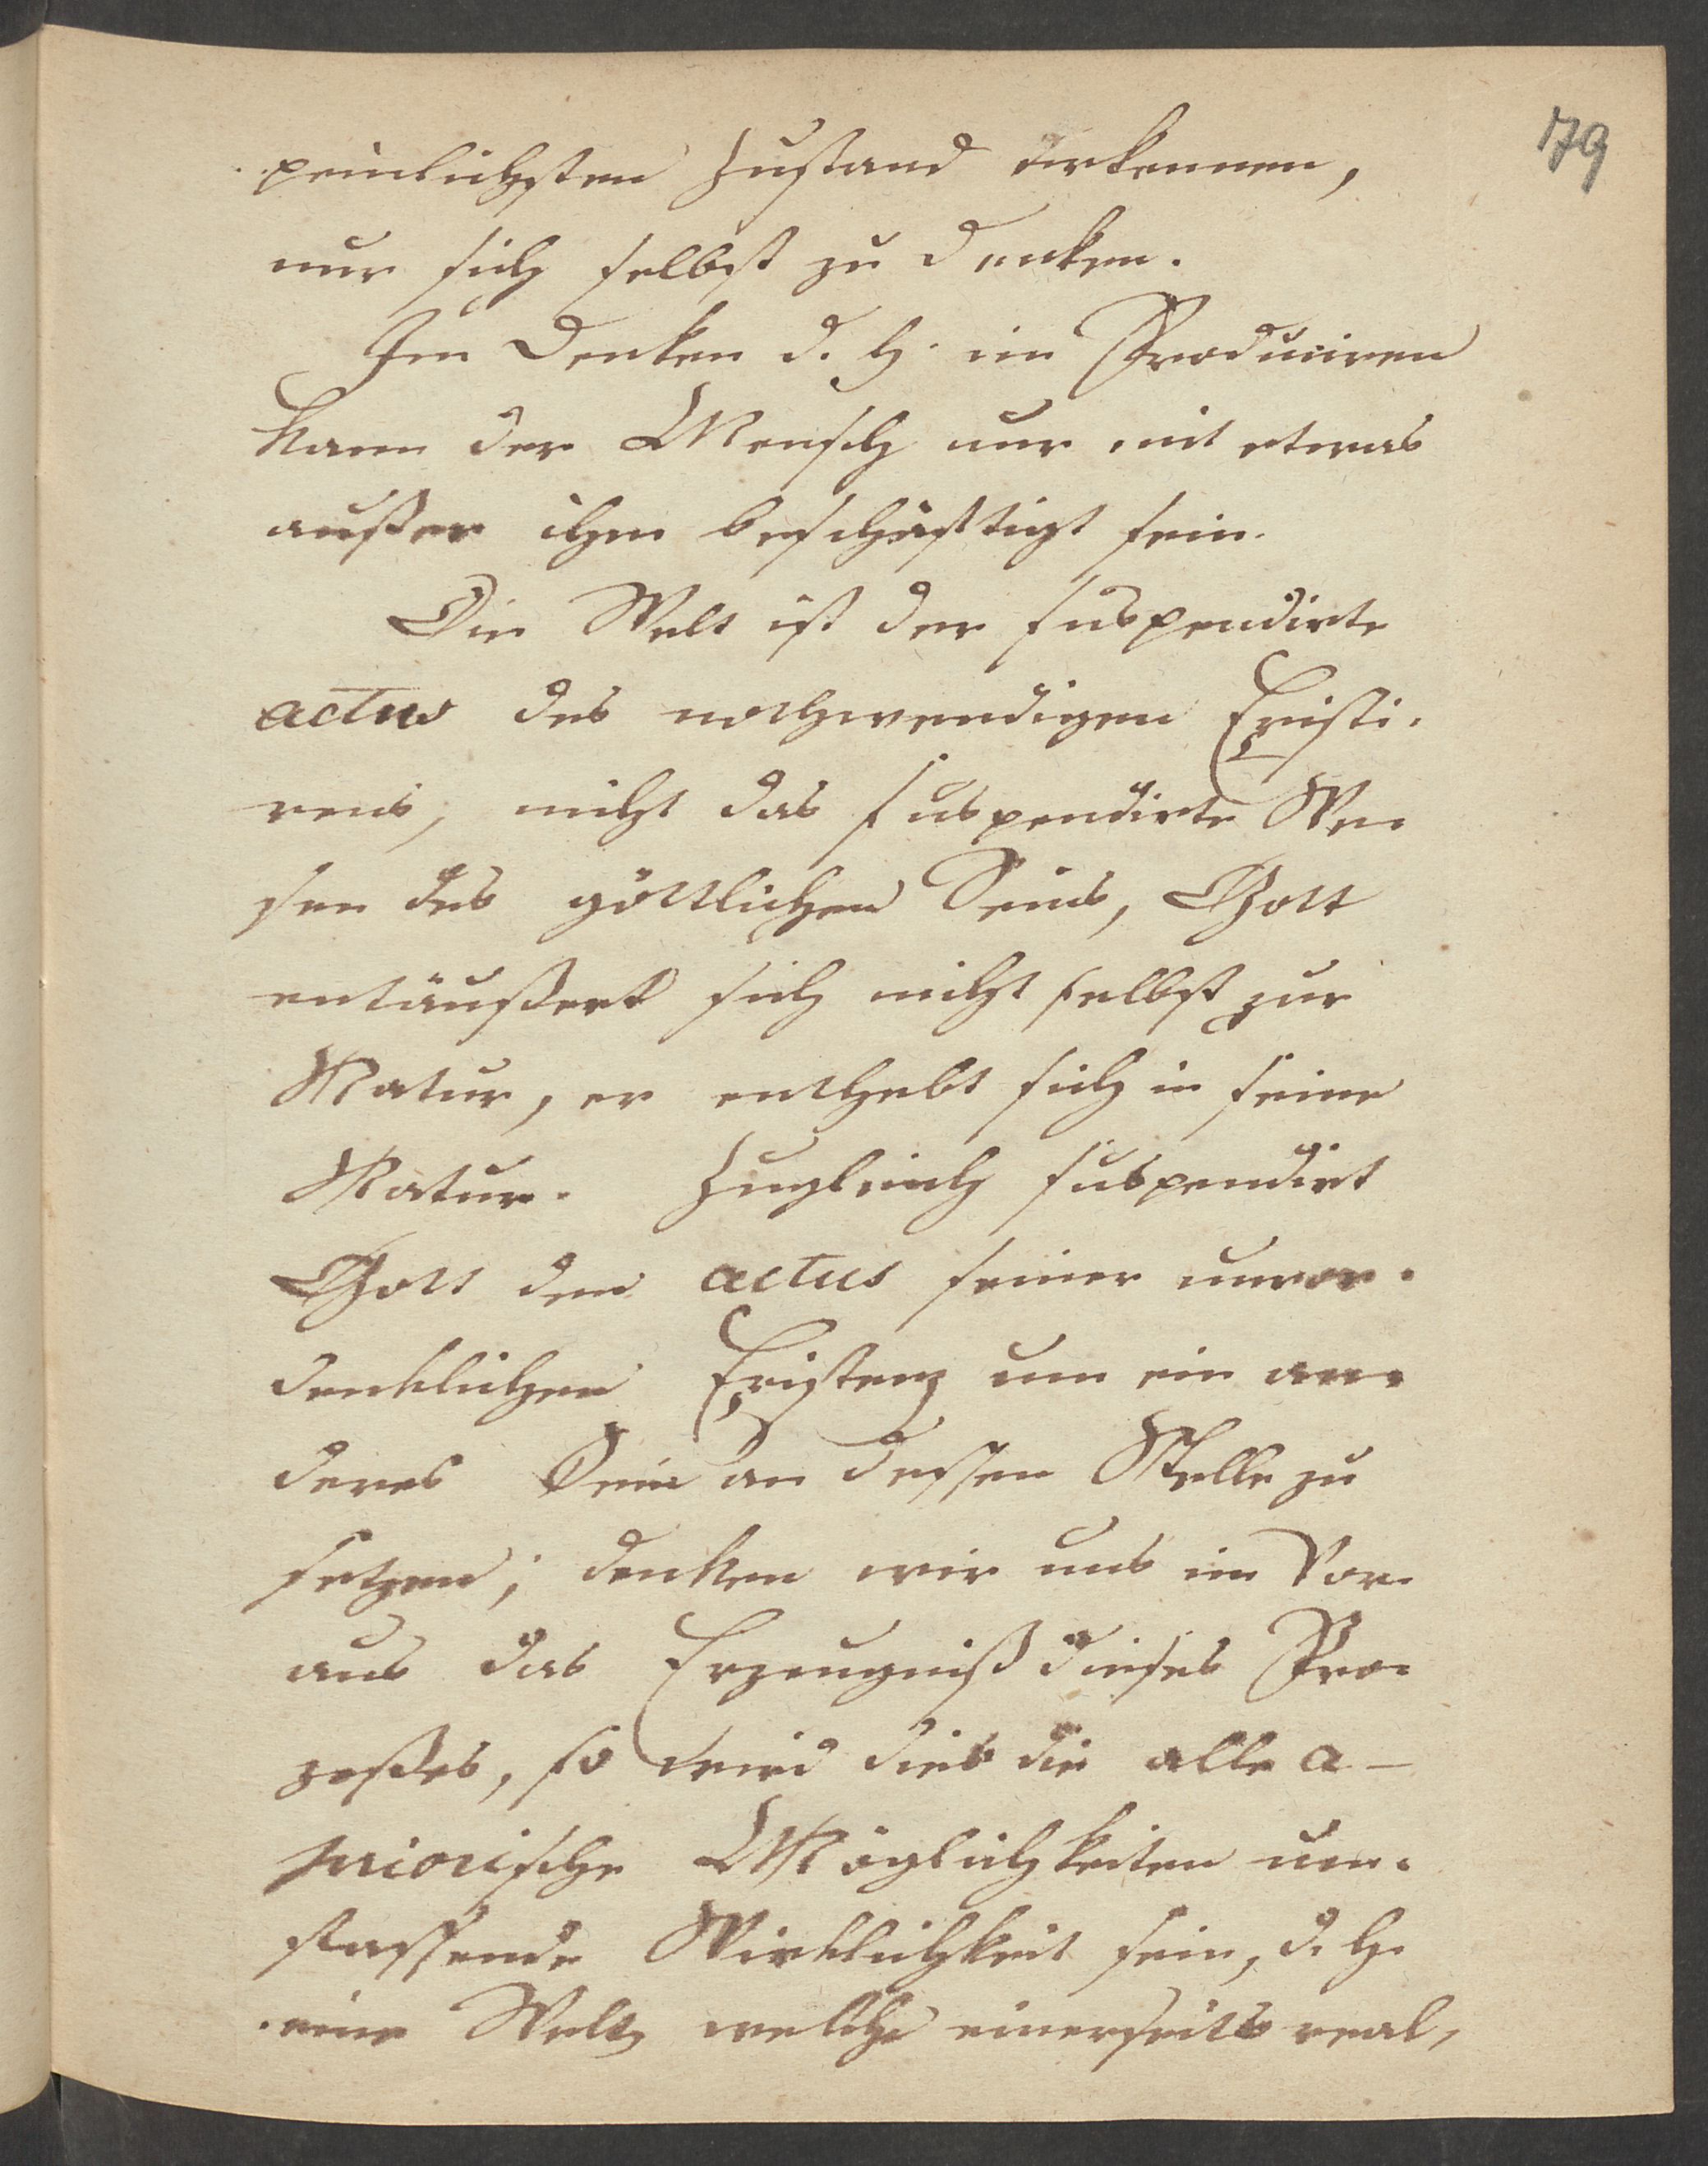 179
peinlichsten Zustand erkennen,
nur sich selbst zu denken.
Im Denken d. h. im Produciren
kann der Mensch nur mit etwas
außer ihm beschäftigt sein.
Die Welt ist der suspendirte
actus des nothwendigen Existi-
rens, nicht das suspendirte We-
sen des göttlichen Seins, Gott
entäußert sich nicht selbst zur
Natur, er enthebt sich in seine
Natur. Zugleich suspendirt
Gott den actus seiner unvor-
denklichen Existenz um ein an-
deres Sein an dessen Stelle zu
setzen; denken wir uns im Vor-
aus das Erzeugniß dieses Pro-
zeßes, so wird dies die alle a-
priorische Möglichkeiten um-
fassende Wirklichkeit sein, d. h.
eine Welt, welche einerseits real,